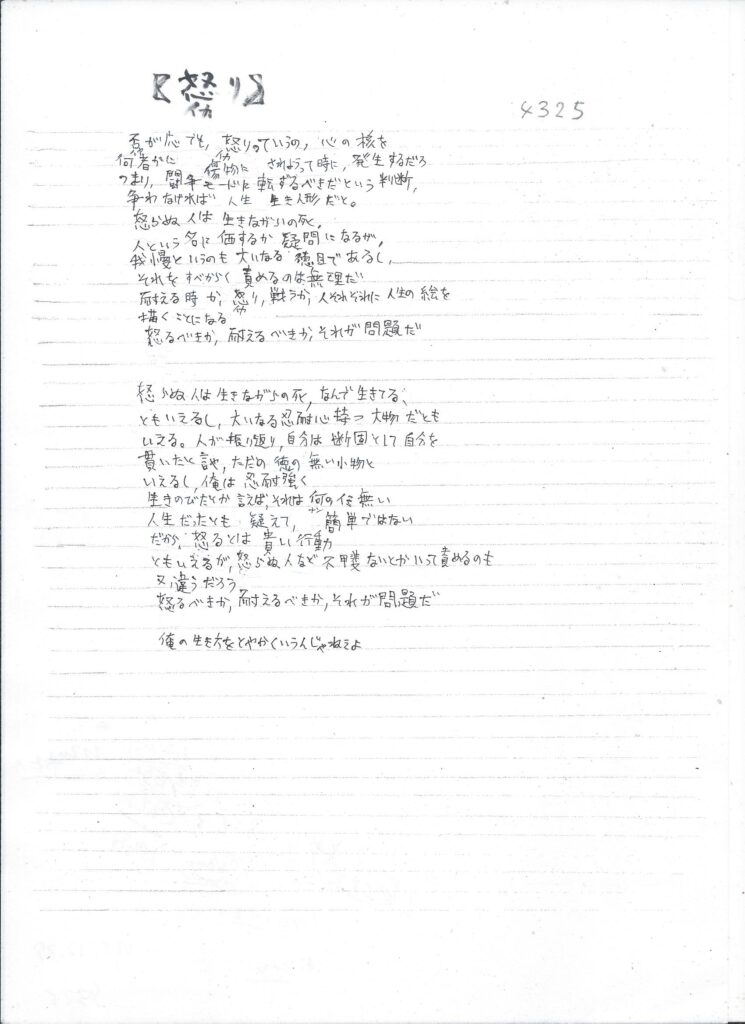 【怒り】
イカ
4325
否が応でも、怒りっていうの、心の核を
何者かに 傷物に されようって時に、発生するだろ
つまり、闘争モードに転ずるべきだという判断、
争わなければ 人生 生き人形だと。
怒らぬ人は生きながらの死、
人という名に価するか疑問になるが、
我慢というのも大いなる徳目であるし、
それをすべからく責めるのは無理だ
耐える時か、怒り、戦うか、人それぞれに人生の絵を
イカ
描くことになる
怒るべきか、耐えるべきか、それが問題だ
怒らぬ人は生きながらの死、なんで生きてる、
ともいえるし、大いなる忍耐心持つ大物だとも
いえる。人が振り返り、自分は断固として自分を
貫いたと言や、ただの徳の無い小物と
いえるし、俺は忍耐強く
生きのびたとか言えば、それは何の伝無い
ナン
人生だったとも 疑えて、 簡単ではない
だから、怒るとは貴い行動
ともいえるが、怒らぬ人など不甲斐ないとかいって責めるのも
又、違うだろう
怒るべきか、耐えるべきか、それが問題だ
俺の生き方をとやかくいうんじゃねえよ